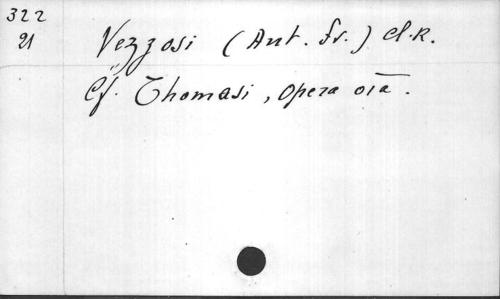 322
21
Vezzosi (Ant. Fr.) Cl. R.
Cf. Thomasi, Opera oīa.